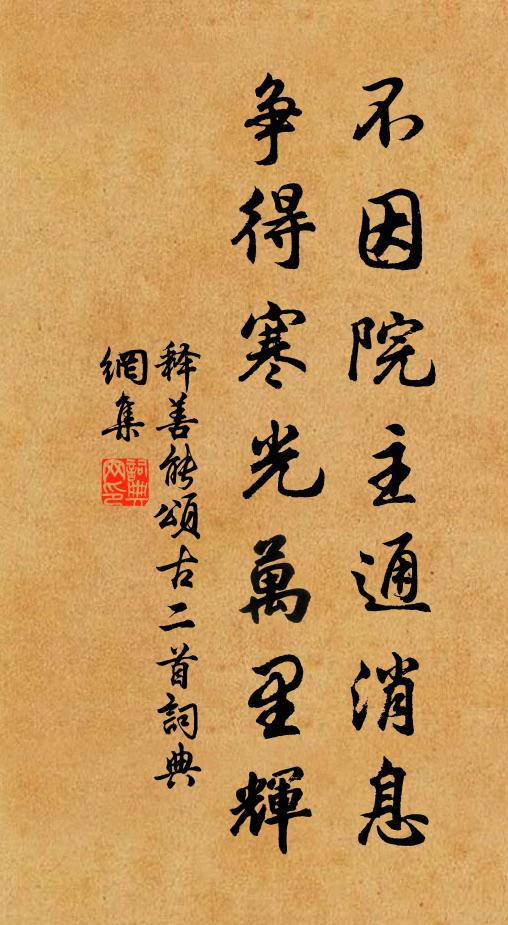 不因院主通消息
争得寒光萬里輝
释善能頌古二首詞典
網集
詞典
网印